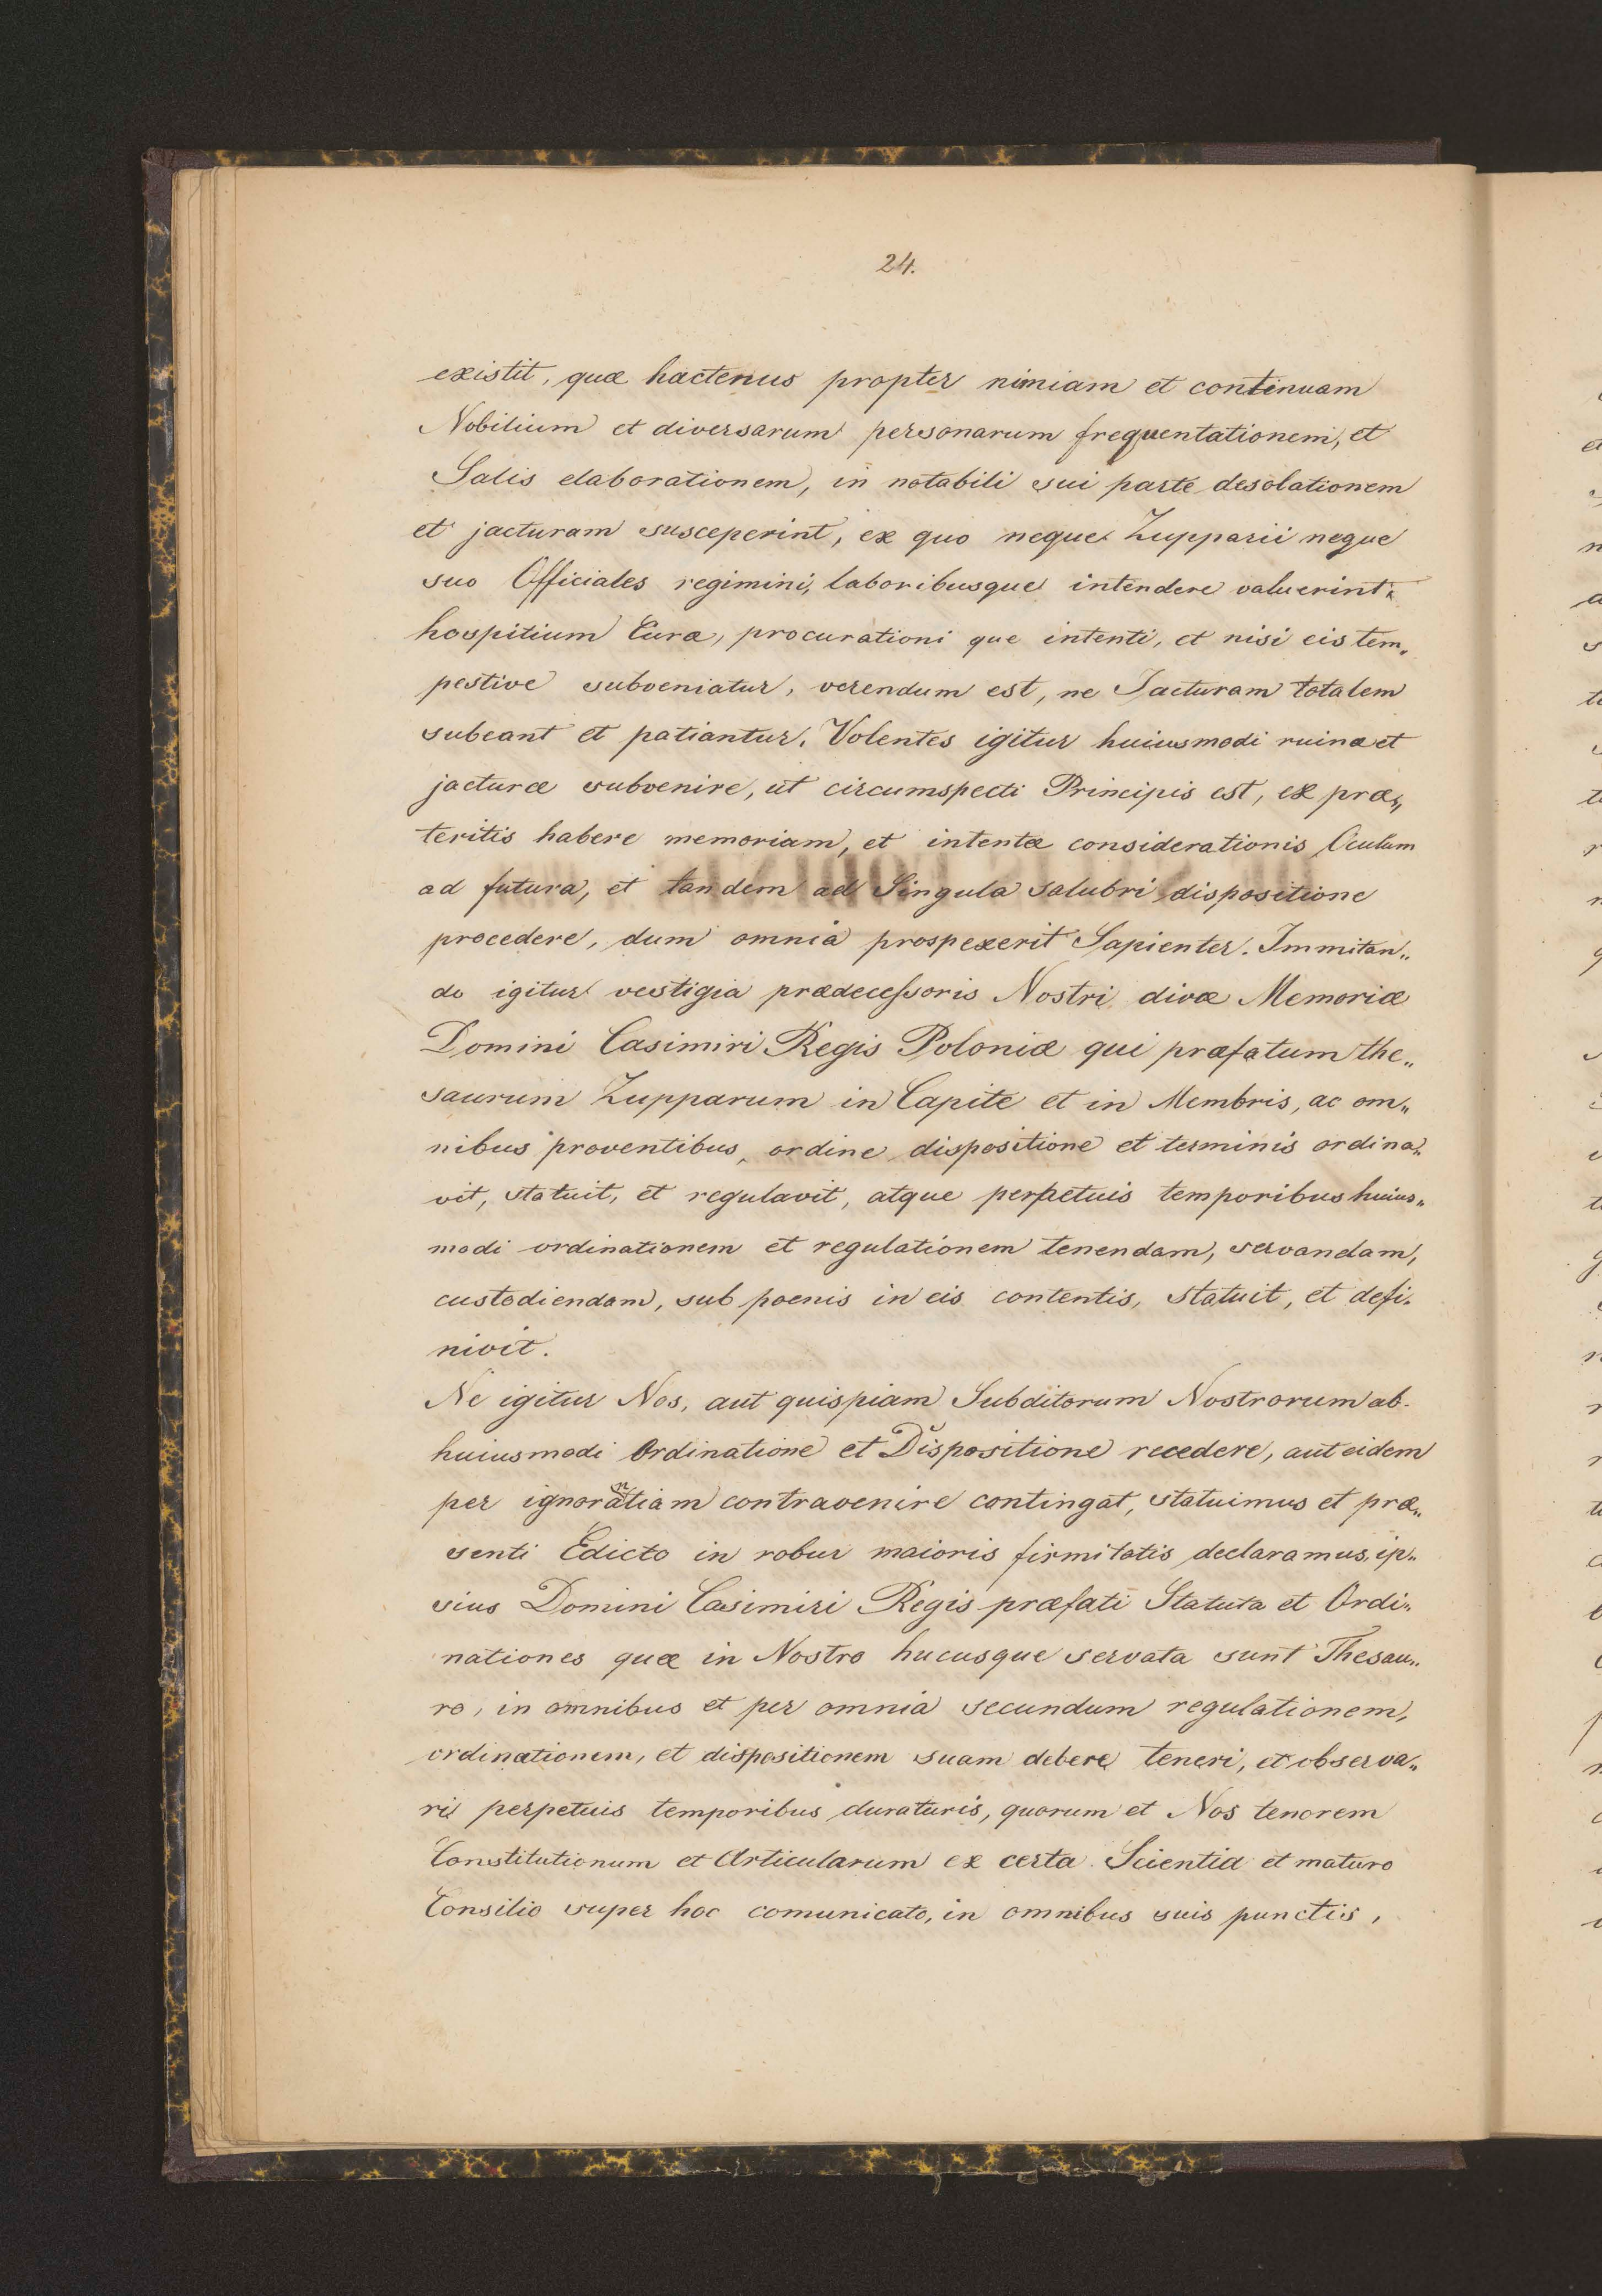 24.
existit, quæ hactenus propter nimiam et continuam
Nobilium et diversarum personarum frequentationem, et
Salis elaborationem, in notabili sui parte desolationem
et jacturam susceperint, ex quo neque Zupparii neque
suo Officiales regimini, laboribusque intendere valuerint
hospitium Curæ, procurationi que intenti, et nisi eis tem„
pestive subveniatur, verendum est, ne Jacturam totalem
subeant et patiantur. Volentes igitur huiusmodi ruinæ et
jacturæ subvenire, ut circumspecti Principis est, ex præ„
teritis habere memoriam, et intentæ considerationis Oculum
ad futura, et tandem ad Singula salubri dispositione
procedere, dum omnia prospexerit Sapienter. Immitan„
do igitur vestigia prædecessoris Nostri divæ Memoriæ
Domini Casimiri Regis Poloniæ qui præfatum the„
saurum Zupparum in Capite et in Membris, ac om„
nibus proventibus, ordine dispositione et terminis ordina„
vit, statuit, et regulavit, atque perpetuis temporibus huius„
modi ordinationem et regulationem tenendam, servandam,
custodiendam, sub poenis in eis contentis, statuit, et defi„
nivit.
Ne igitur Nos, aut quispiam Subditorum Nostrorum ab
huiusmodi Ordinatione et Dispositione recedere, aut eidem
per ignorantiam contravenire contingat, statuimus et præ„
senti Edicto in robur maioris firmitatis declaramus, ip„
sius Domini Casimiri Regis præfati Statuta et Ordi„
nationes quæ in Nostro hucusque servata sunt Thesau„
ro, in omnibus et per omnia secundum regulationem,
ordinationem, et dispositionem suam debere teneri, et observa„
ri perpetuis temporibus duraturis, quorum et Nos tenorem
Constitutionum et Articularum ex certa Scientia et maturo
Consilio super hoc comunicato, in omnibus suis punctis,